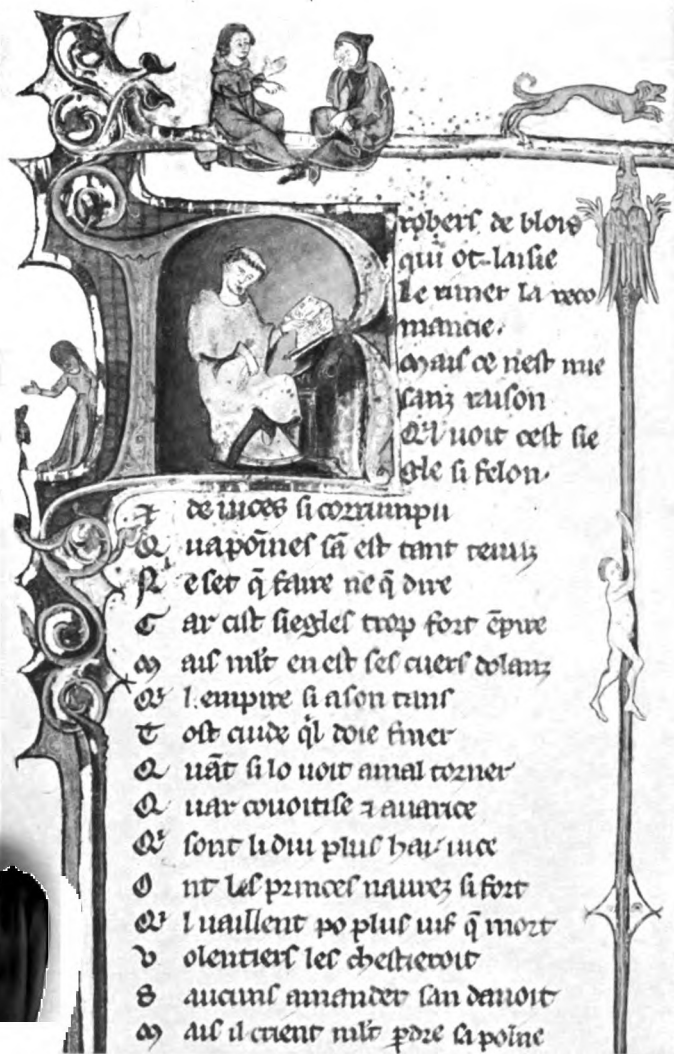 Robers de blois
qui ot laisie
le rimer la reco
mancie.
Mais ce nest mie
sanz raison
Qͥl uoit cest sie
gle si felon.
de uices si corrumpu
Q ua poͥnes sā est tant tenuz
N e set q̄ faire ne q̄ dire
C ar cist siegles trop fort ēpire
M ais mlͭt en est ses cuers dolanz
Qͥ l empire si a son tans
T ost cuide qͥl doie finer
Q uāt si lo uoit a mal torner
Q uar couoitise ⁊ auarice
Qͥ sont li dui plus hau uice
O nt les princes naurez si fort
Qͥ l uaillent po plus uif q̄ mort
V olentiers les chestieroit
S aucuns amander san dauoit
M ais il crient mlͭt ꝑdre sa poine